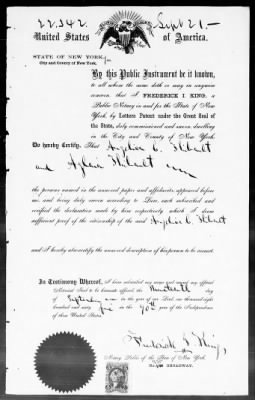 22.342. Sept 21.-
United States of America.
STATE OF NEW YORK,
City and County of New York,
By this Public Instrument be it known,
to all whom the same doth or may in anywise
concern, that I FREDERICK I. KING, a
Public Notary in and for the State of New
York, by Letters Patent under the Great Seal of
the State, duly commissioned and sworn, dwelling
in the City and County of New York,
Do hereby Certify, That
and
the persons named in the annexed paper and affidavits, appeared before
me, and being duly sworn according to Law, each subscribed and
verified the declaration made by him respectively which I deem
sufficient proof of the citizenship of the said
and I hereby also certify the annexed description of his person to be correct.
In Testimony Whereof, I have subscribed my name and caused my official
Notarial Seal to be hereunto affixed, the day
of in the year of Our Lord, one thousand eight
hundred and sixty and in the 90th year of the Independence
of these United States.
Frederick I. King,
Notary Public of the State of New York.
BROADWAY.